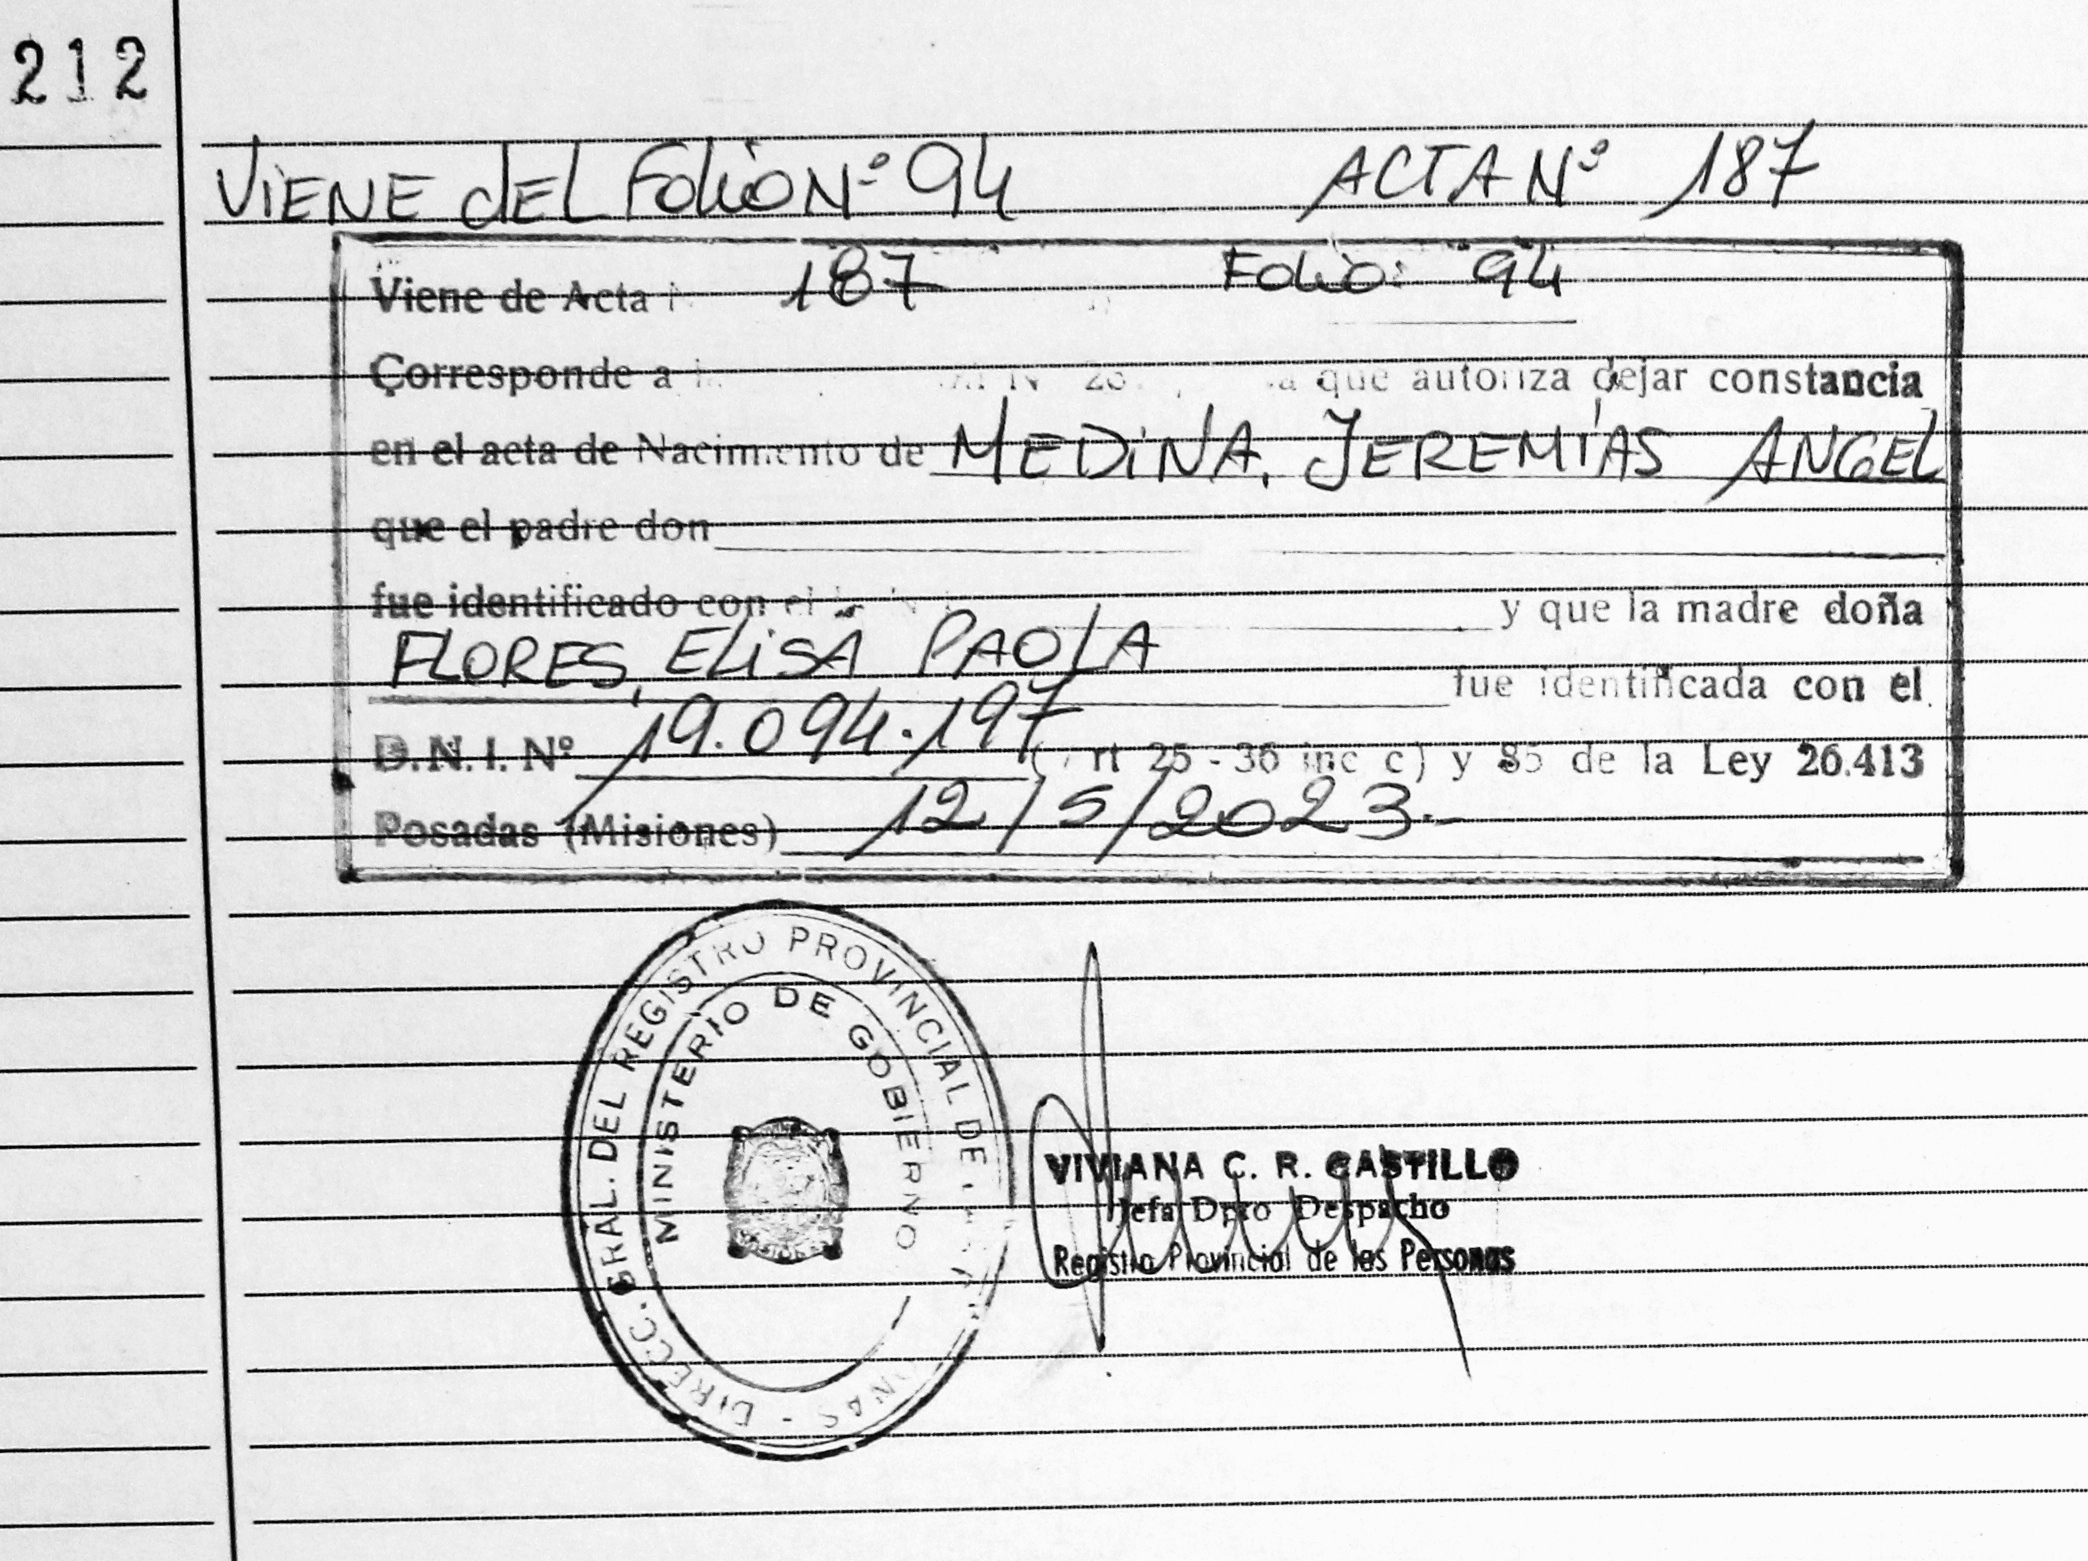 212
VIENE dEL FOLIO Nº 94 ACTA Nº 187
Viene de Acta 187 FOLIO: 94
Corresponde a que autoriza dejar constancia
en el acta de Nacimiento de MEDINA, JEREMÍAS ANGEL
que el padre don
fue identificado con el y que la madre doña
FLORES, ELISA PAOLA fue identificada con el
D.N.I. Nº 19.094.197 (Art 25 - 36 inc c) y 85 de la Ley 26.413
Posadas (Misiones) 12/5/2023.-
DIRECC. GRAL. DEL REGISTRO PROVINCIAL DE
MINISTERIO DE GOBIERNO
VIVIANA C. R. CASTILLO
Jefa Dpto Despacho
Registro Provincial de las Personas